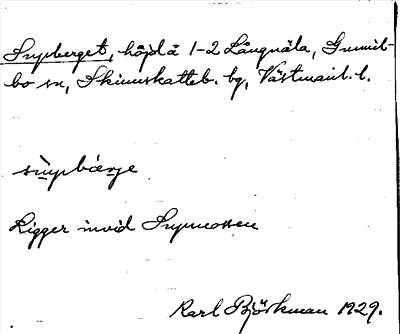 Supberget, höjd å 1-2 Långnäla, Gunnil-
bo sn, Skinnskatteb. bg, Västmanl. l.
sùpbárje
Ligger invid Supmossen
Karl Björkman 1929.